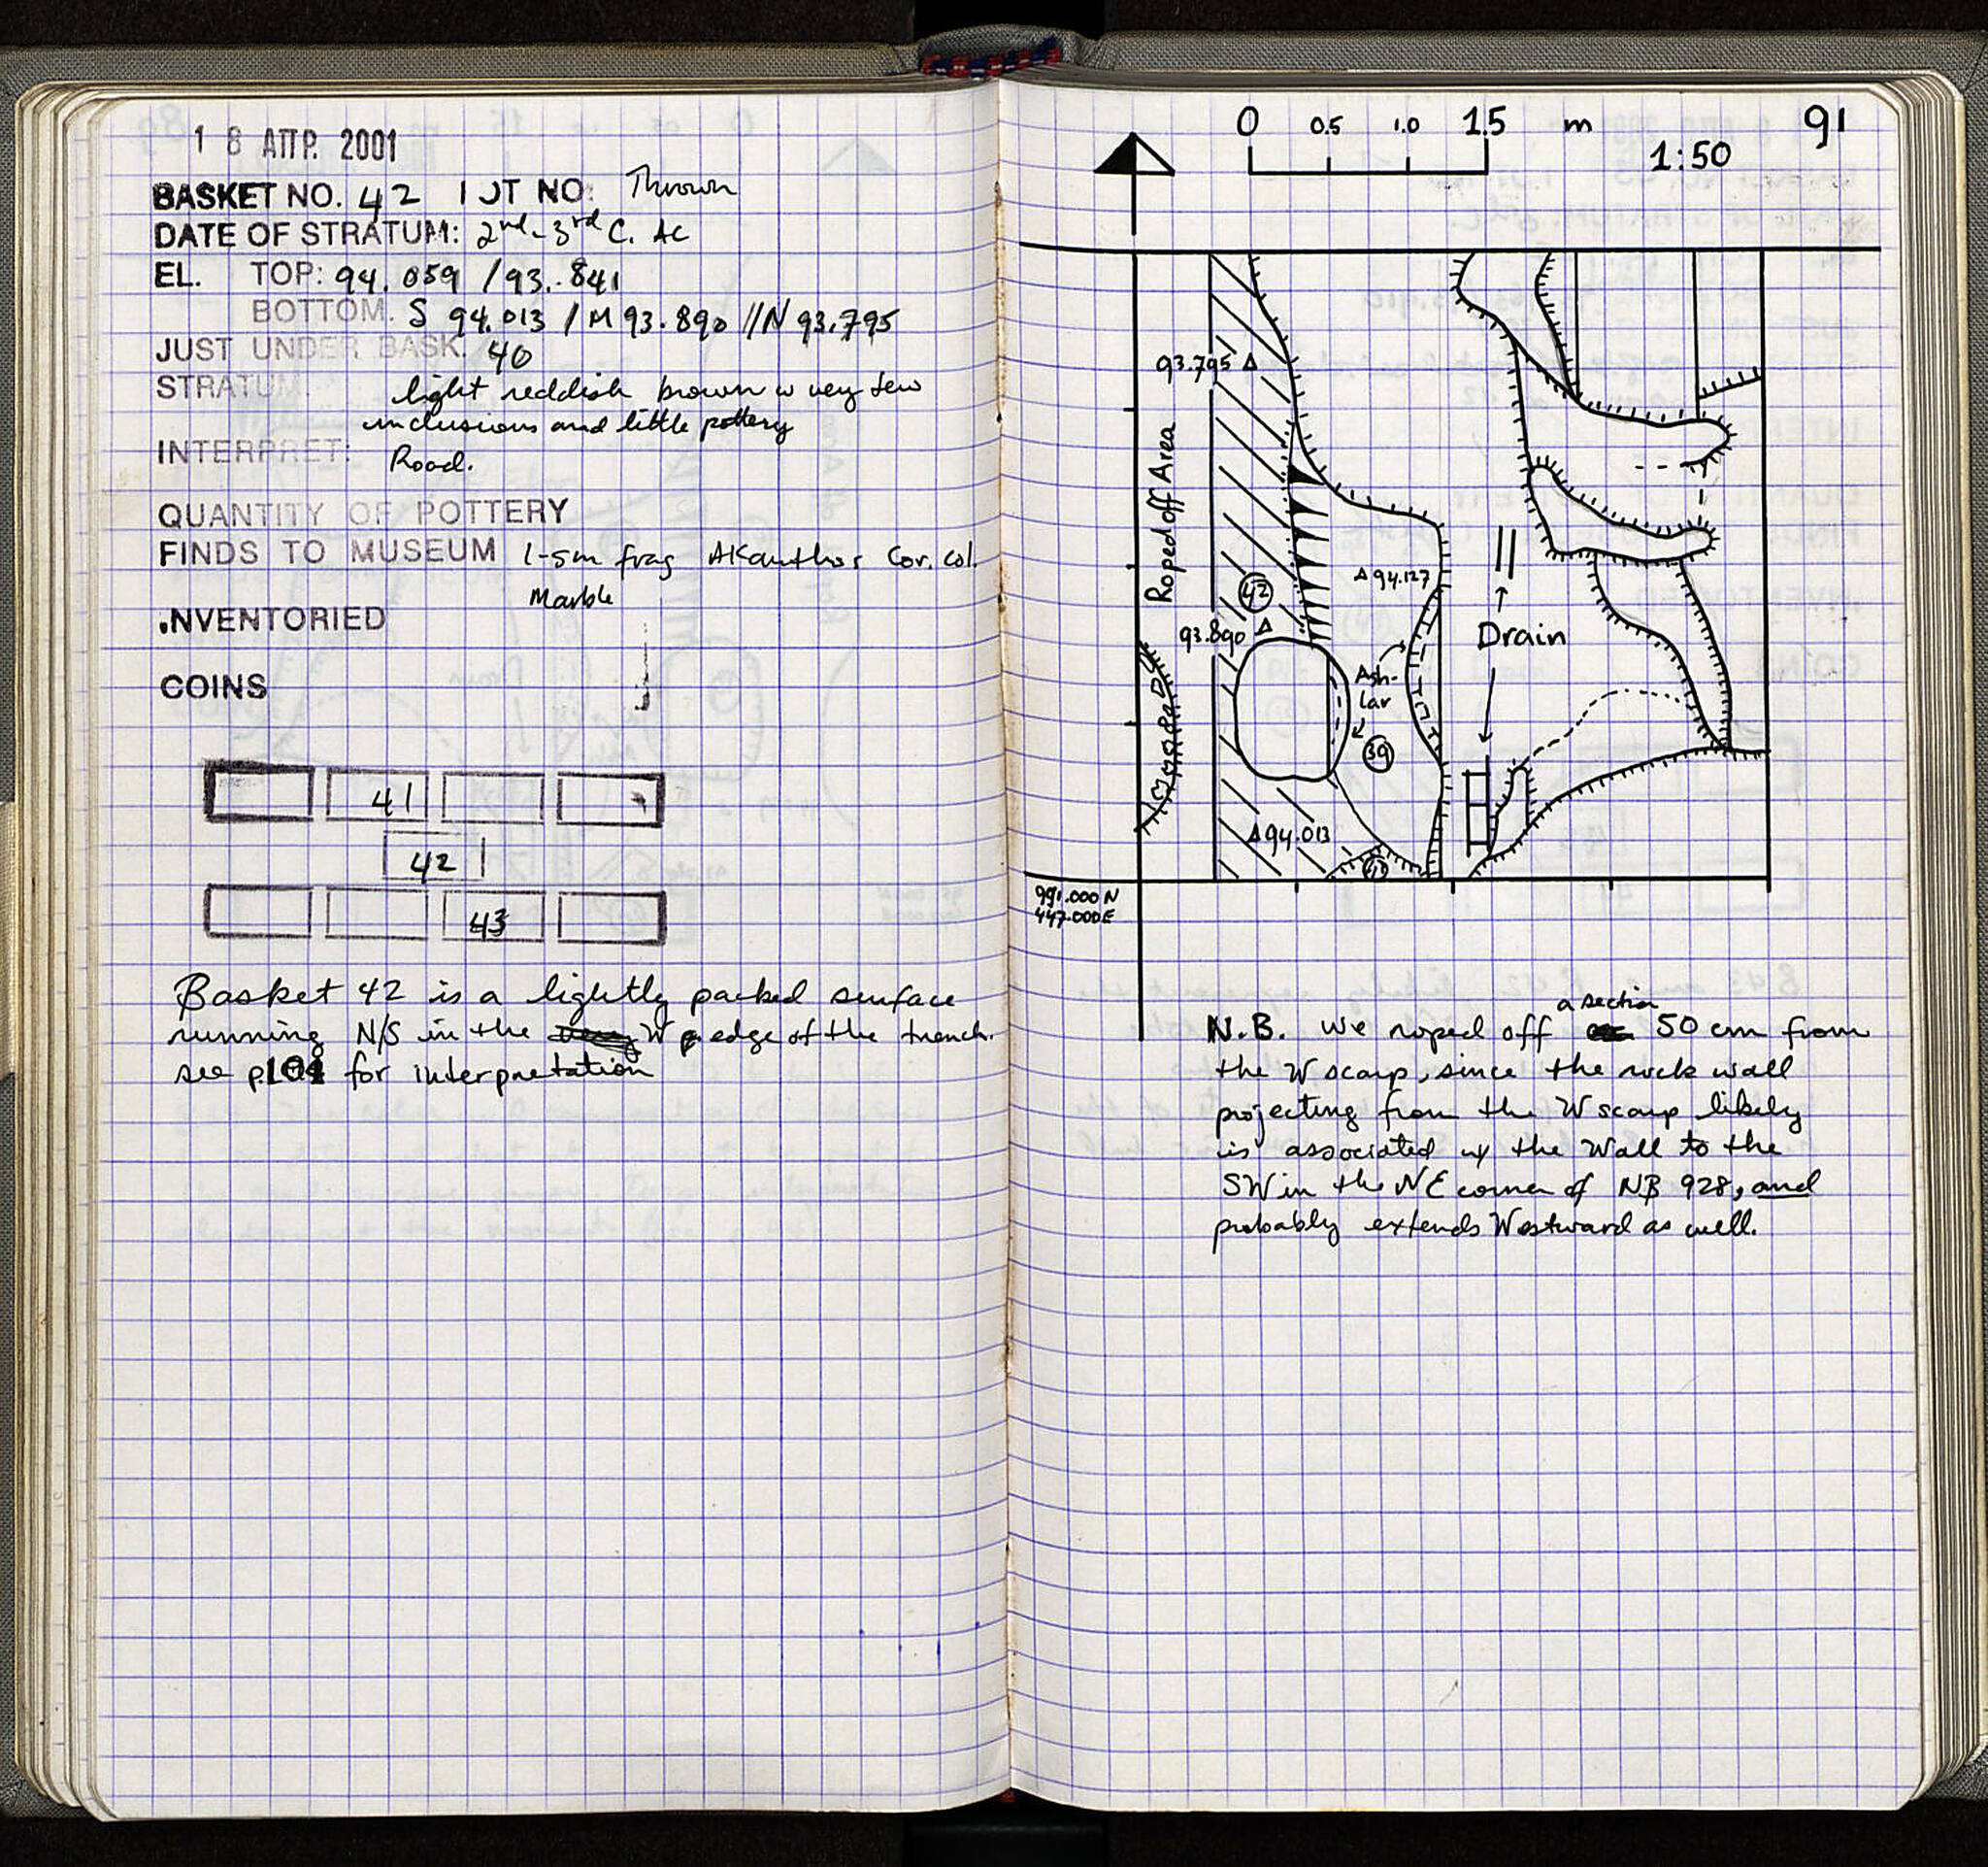 18 ΑΠΡ. 2001
BASKET NO. 42 LOT NO. Thrown
DATE OF STRATUM: 2nd-3rd C. AC
EL. TOP: 94.059 / 93.841
BOTTOM. S 94.013 / M 93.890 // N 93.795
JUST UNDER BASK. 40
STRATUM. light reddish brown w very few
inclusions and little pottery
INTERPRET: Road.
QUANTITY OF POTTERY
FINDS TO MUSEUM 1-sm frag Akanthos Cor. Col.
Marble
INVENTORIED
COINS
41
42
43
Basket 42 is a lightly packed surface
running N/S in the W edge of the trench.
see p 101 for interpretation
91
0 0.5 1.0 1.5 m
1:50
93.795
Roped off Area
42
94.127
93.890
Drain
Ash-
lar
39
94.013
991.000 N
447.000 E
N.B. we roped off a section 50 cm from
the W scarp, since the rock wall
projecting from the W scarp likely
is associated w/ the Wall to the
SW in the NE corner of NB 928, and
probably extends Westward as well.